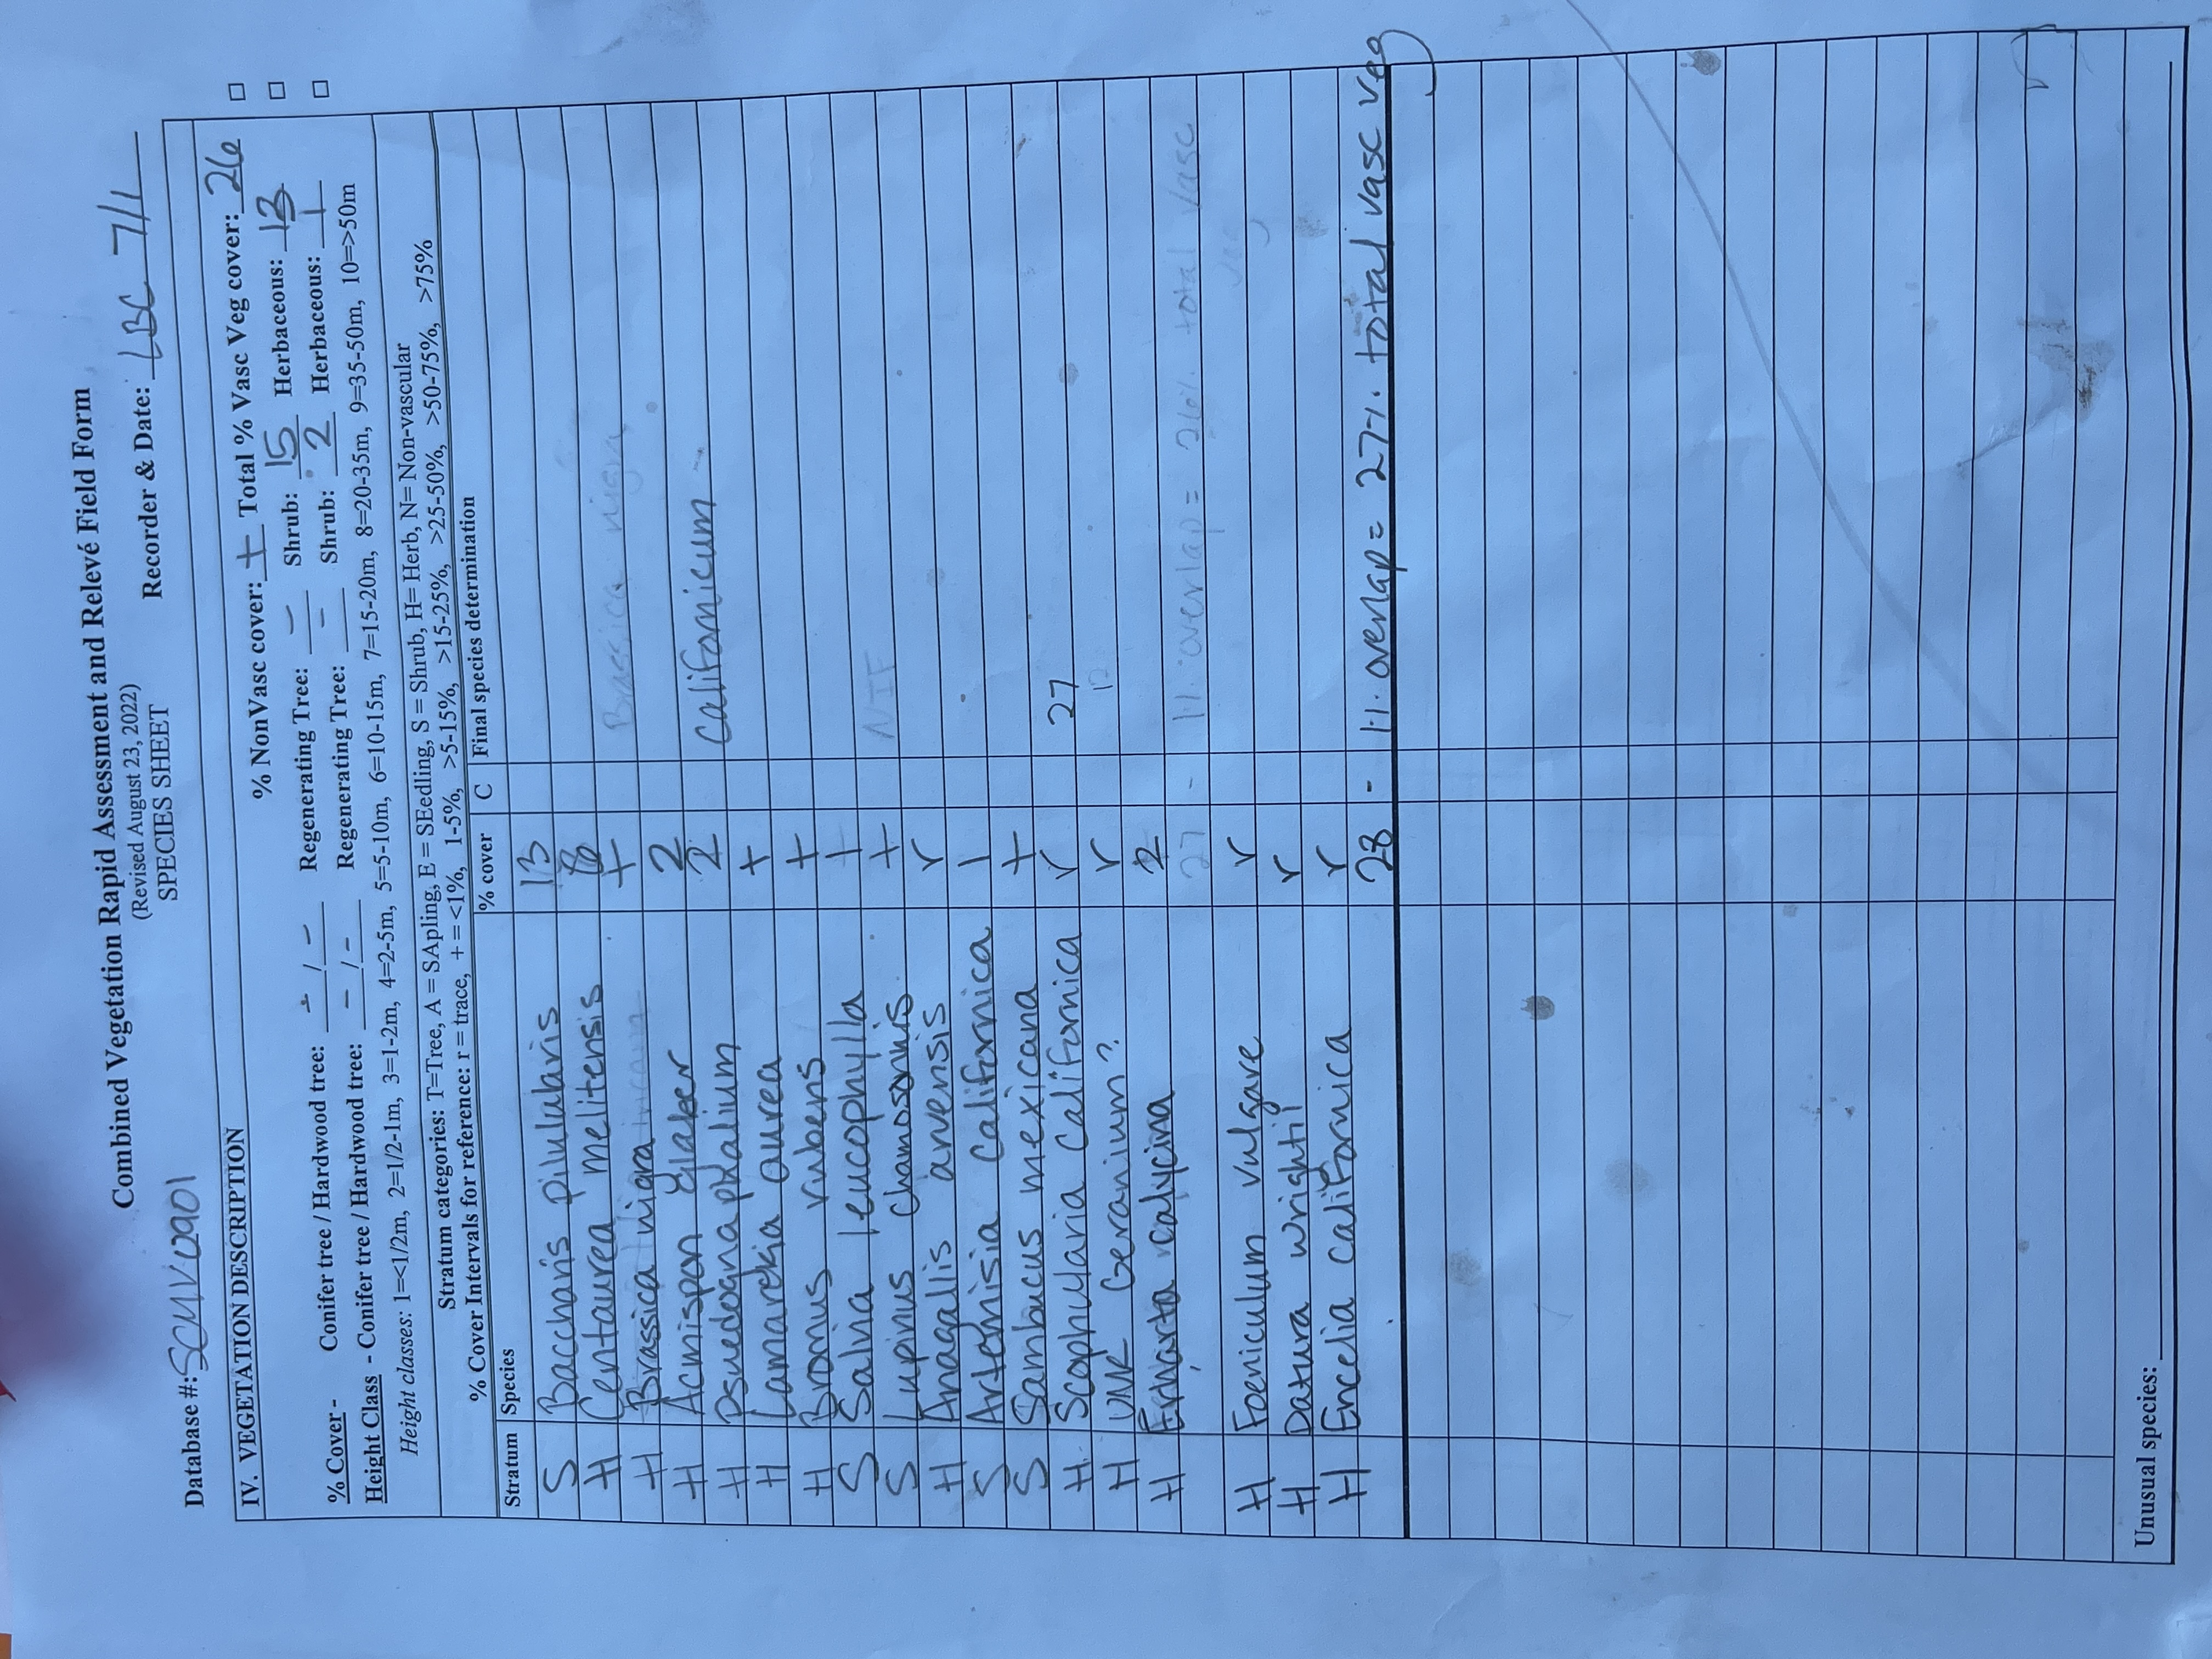 Combined Vegetation Rapid Assessment and Relevé Field Form
(Revised August 23, 2022)
SPECIES SHEET
Database #: SCMV0901 Recorder & Date: LBC 7/1
IV. VEGETATION DESCRIPTION
% NonVasc cover: + Total % Vasc Veg cover: 26
% Cover - Conifer tree / Hardwood tree: - / - Regenerating Tree: - Shrub: 15 Herbaceous: 13
Height Class - Conifer tree / Hardwood tree: - / - Regenerating Tree: - Shrub: 2 Herbaceous: 1
Height classes: 1=<1/2m, 2=1/2-1m, 3=1-2m, 4=2-5m, 5=5-10m, 6=10-15m, 7=15-20m, 8=20-35m, 9=35-50m, 10=>50m
Stratum categories: T=Tree, A = SApling, E = SEedling, S = Shrub, H= Herb, N= Non-vascular
% Cover Intervals for reference: r = trace, + = <1%, 1-5%, >5-15%, >15-25%, >25-50%, >50-75%, >75%
Stratum Species % cover C Final species determination
S Baccharis pilularis 13
H Centaurea melitensis 8
H Brassica nigra + Brassica nigra
H Acmispon glaber 2
H Psuedognaphalium 2 californicum
H Lamarckia aurea +
H Bromus rubens +
S Salvia leucophylla 1
S Lupinus chamosonnis + NIF
H Anagallis arvensis r
S Artemisia californica 1
S Sambucus mexicana +
H Scophularia californica r 27
H UNK Geranium? r 12
H Erharta calycina 2
27 - 1% overlap = 26% total vasc
veg
H Foeniculum vulgare r
H Datura wrightii r
H Encelia californica r
28 - 1% overlap = 27% total vasc veg
Unusual species: